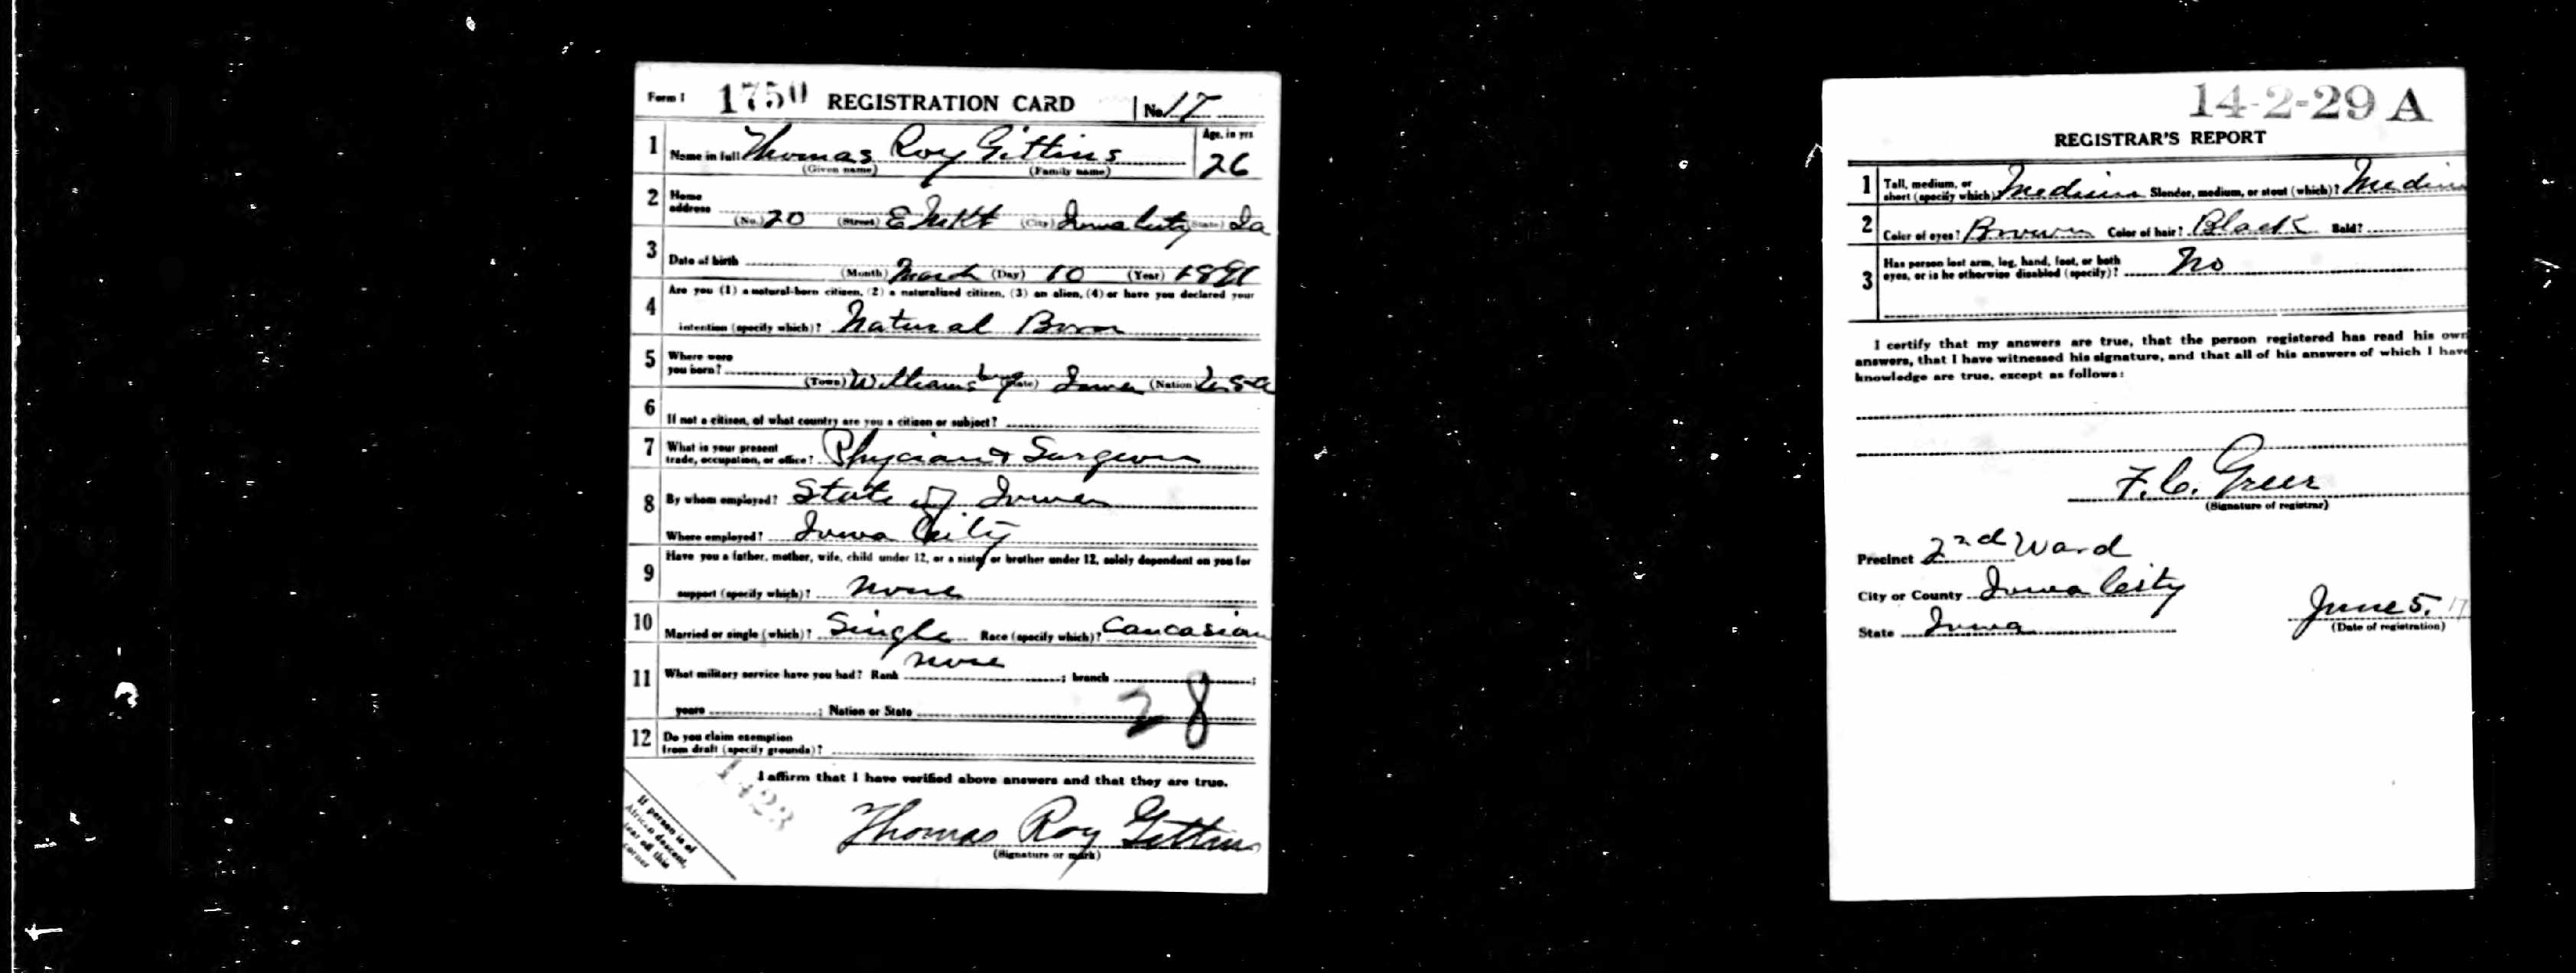 Form 1 1750 REGISTRATION CARD No. 17
1 Name in full Thomas Roy Gittins Age, in yrs
(Given name) (Family name) 26
2 Home address (No.) 20 (Street) E Mkt (City) Iowa City (State) Ia
3 Date of birth (Month) March (Day) 10 (Year) 1891
4 Are you (1) a natural-born citizen, (2) a naturalized citizen, (3) an alien, (4) or have you declared your
intention (specify which)? Natural Born
5 Where were you born? (Town) Williamsburg (State) Iowa (Nation) U.S.A
6 If not a citizen, of what country are you a citizen or subject?
7 What is your present trade, occupation, or office? Physcian & Surgeon
8 By whom employed? State of Iowa
Where employed? Iowa City
9 Have you a father, mother, wife, child under 12, or a sister or brother under 12, solely dependent on you for
support (specify which)? None
10 Married or single (which)? Single Race (specify which)? Caucasian
11 What military service have you had? Rank none ; branch ;
years ; Nation or State 28
12 Do you claim exemption from draft (specify grounds)?
I affirm that I have verified above answers and that they are true.
1423
Thomas Roy Gittins
(Signature or mark)
If person is of
African descent,
tear off this
corner
14-2-29 A
REGISTRAR'S REPORT
1 Tall, medium, or short (specify which)? Medium Slender, medium, or stout (which)? Medium
2 Color of eyes? Brown Color of hair? Black Bald?
3 Has person lost arm, leg, hand, foot, or both eyes, or is he otherwise disabled (specify)? No
I certify that my answers are true, that the person registered has read his own
answers, that I have witnessed his signature, and that all of his answers of which I have
knowledge are true, except as follows:
F. C. Greer
(Signature of registrar)
Precinct 2nd Ward
City or County Iowa City June 5, 17
State Iowa (Date of registration)